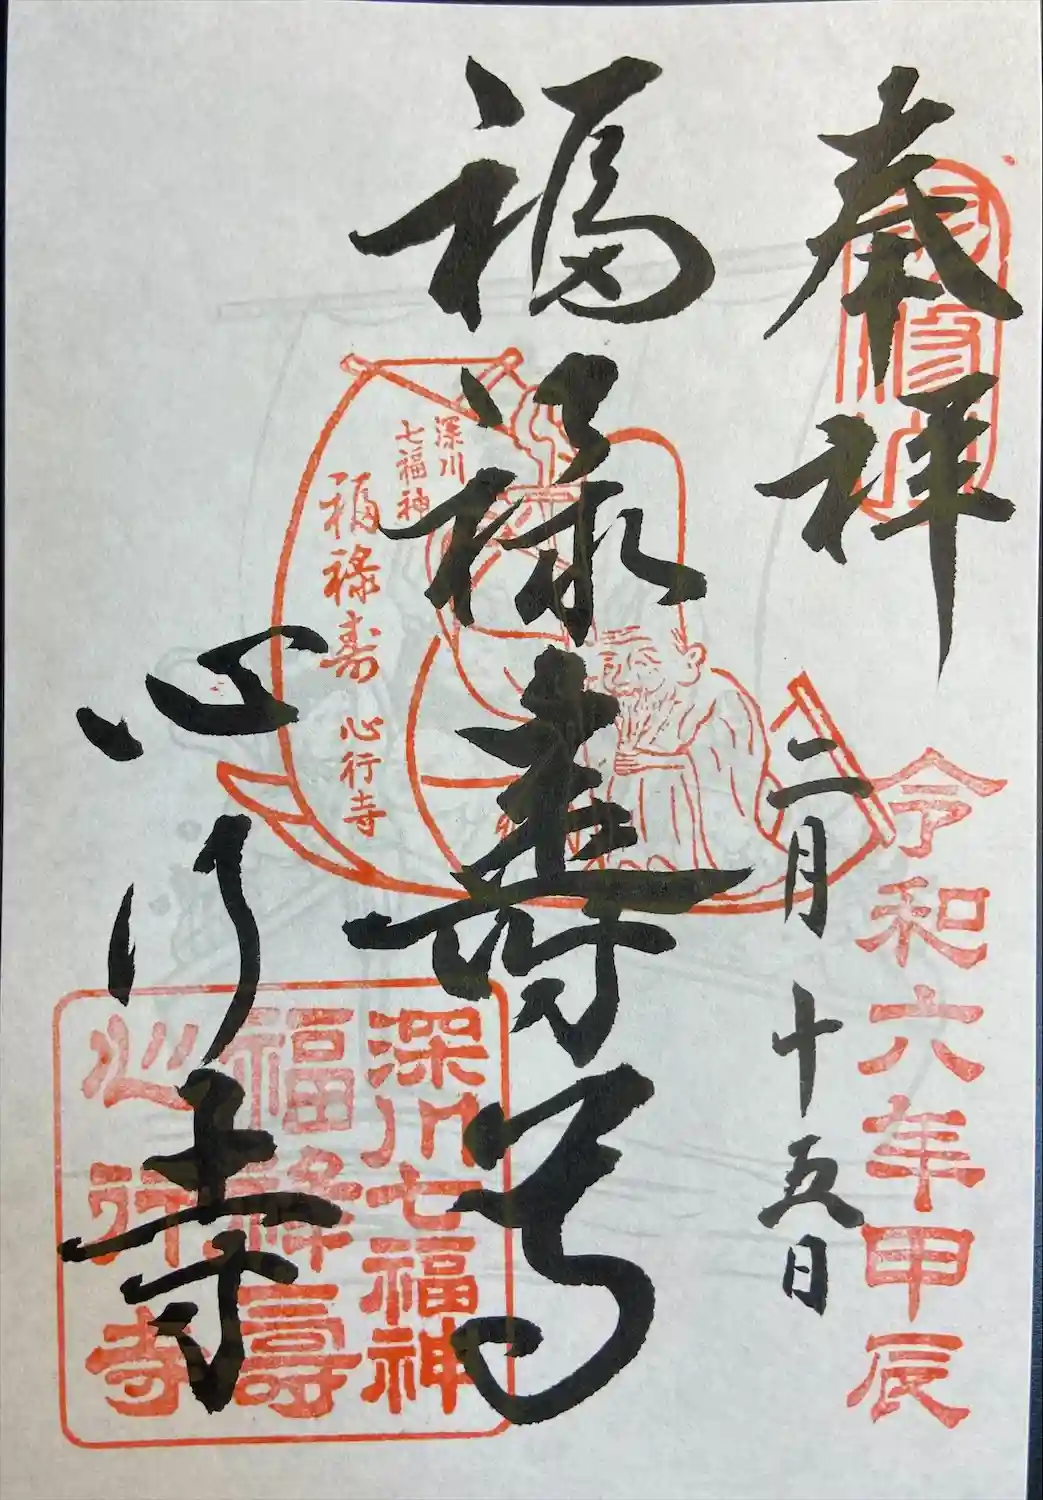 奉拝
令和六年甲辰
二月十五日
福禄寿尊
深川
七福神
福禄寿 心行寺
心行寺
深川七福神
福禄壽
心行寺